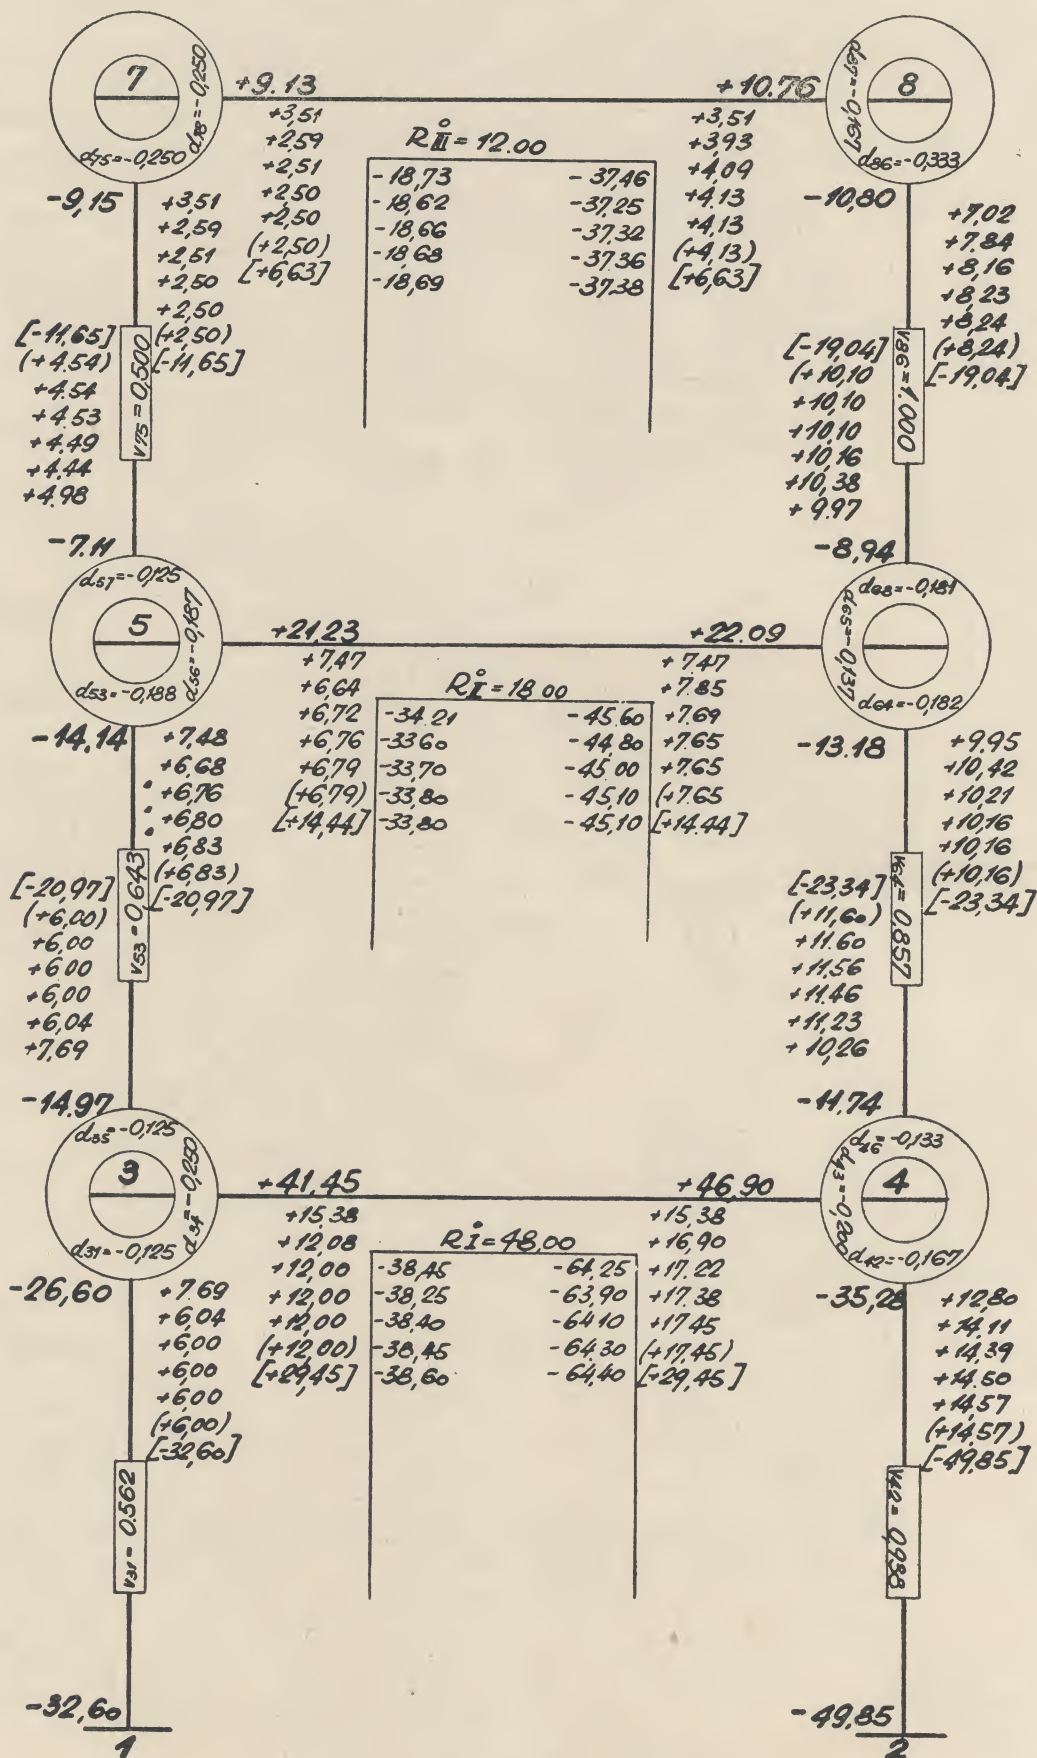 7
d78=-0,250
d75=-0,250
+9.13
+10.76
8
d87=-0,167
d86=-0,333
+3,51
+2,59
+2,51
+2,50
+2,50
(+2,50)
[+6,63]
RIII°=12.00
-18,73 -37,46
-18,62 -37,25
-18,66 -37,32
-18,68 -37,36
-18,69 -37,38
+3,51
+3,93
+4,09
+4.13
+4,13
(+4,13)
[+6,63]
-9,15
+3,51
+2,59
+2,51
+2,50
+2,50
(+2,50)
[-11,65]
v75=0,500
[-11,65]
(+4.54)
+4.54
+4.53
+4.49
+4.44
+4.98
-7.11
-10,80
+7,02
+7.84
+8,16
+8,23
+8,24
(+8,24)
[-19,04]
v86=1.000
[-19,04]
(+10,10
+10,10
+10,10
+10,16
+10,38
+9.97
-8,94
d57=-0,125
5
d56=-0,187
d53=-0,188
+21,23
+22.09
d68=-0,181
d65=-0,137
d64=-0,182
+7,47
+6,64
+6,72
+6,76
+6,79
(+6,79)
[+14,44]
RII°=18.00
-34.21 -45.60
-33.60 -44,80
-33,70 -45,00
-33,80 -45,10
-33,80 -45,10
+7.47
+7.85
+7.69
+7.65
+7.65
(+7.65
[+14.44]
-14,14
+7,48
+6,68
+6,76
+6,80
+6,83
(+6,83)
[-20,97]
v53=0,643
[-20,97]
(+6,00)
+6,00
+6.00
+6,00
+6,04
+7,69
-14.97
-13.18
+9.95
+10,42
+10,21
+10,16
+10,16
(+10,16)
[-23,34]
v64=0,857
[-23,34]
(+11,60)
+11.60
+11,56
+11.46
+11,23
+10,26
-11.74
d35=-0,125
3
d34=-0,250
d31=-0,125
+41,45
+46,90
d46=-0,133
d43=-0,200
4
d42=-0,167
+15,38
+12,08
+12,00
+12,00
+12,00
(+12,00)
[+29,45]
RI°=48,00
-38,45 -64,25
-38,25 -63,90
-38,40 -64.10
-38,45 -64.30
-38,60 -64,40
+15,38
+16,90
+17.22
+17.38
+17.45
(+17,45)
[+29,45]
-26,60
+7.69
+6,04
+6,00
+6,00
+6,00
(+6,00)
[-32,60]
v31=0.562
-32,60
1
-35,28
+12,80
+14,11
+14,39
+14.50
+14,57
(+14,57)
[-49,85]
v42=0,938
-49,85
2